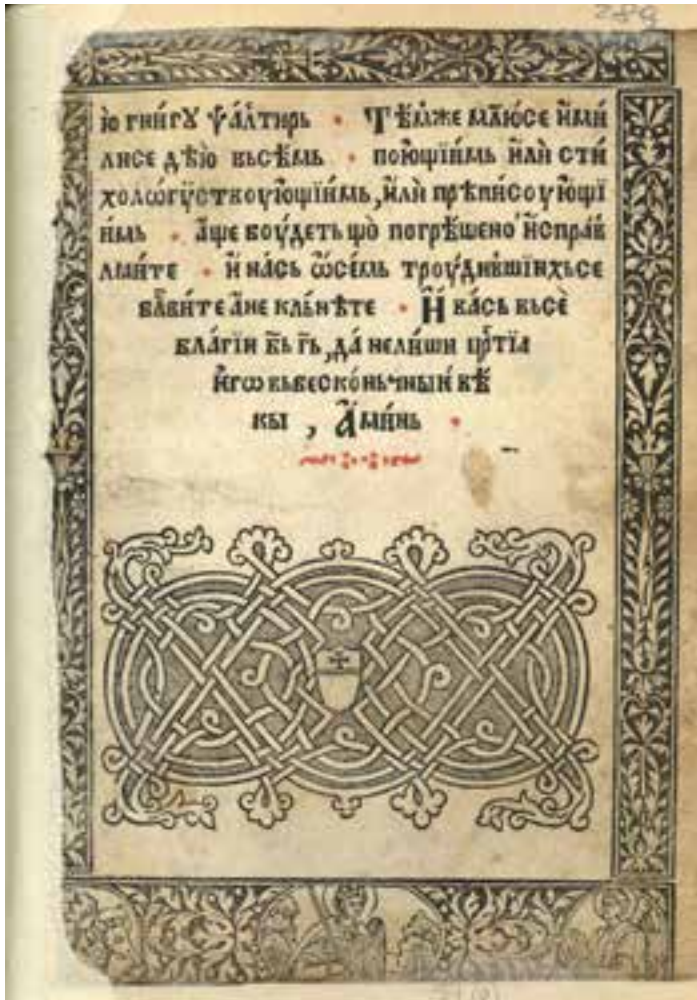 289
ію гнигꙋ ѱал҇тирь · Тѣм̑же мл҃юсе и҆ми
лисе дѣю вьсѣмь · пою́щіимь и҆лѝ сти
холѡгⷭ҇ствоую́щіимь, и҆лѝ прѣпи́соую́щі
имь · а҆ще боу́деть щѡ̀ погрѣ́шено̀ и҆спра́в
лꙗ́ите · и҆ на́сь ѡ҆ се́мь троу́дившіихьсе
бл҃ви́те а҆ не кль́нѣте · И҆ ва́сь вьсѐ
бла́гіи б҃ь г҃ь, да́ не ли́ши цр҇тіа
и҆го вь бесконь́чныи вѣ̀
кы , А҆ми́нь ·